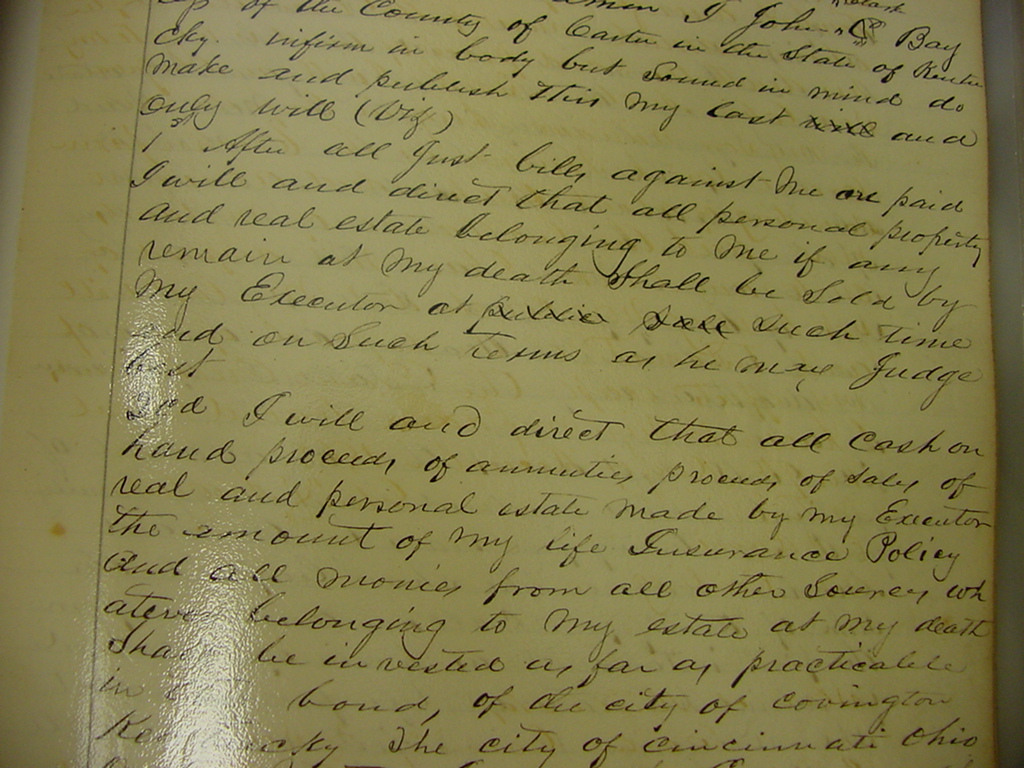 John P Bay
of the County of Carter in the State of
Ky. infirm in body but Sound in mind do
make and publish this my last and
only will (Viz)
1st After all Just bills against me are paid
I will and direct that all personal property
and real estate belonging to me if any
remain at my death shall be sold by
my Executor at such time
and on such terms as he may Judge
best
I will and direct that all Cash on
hand proceeds of annuities proceeds of sales of
real and personal estate made by my Executor
The amount of my life Insurance Policy
and all monies from all other Sources
belonging to my estate at my death
Shall be invested as far as practicable
in bonds of the city of Covington
The city of Cincinnati Ohio